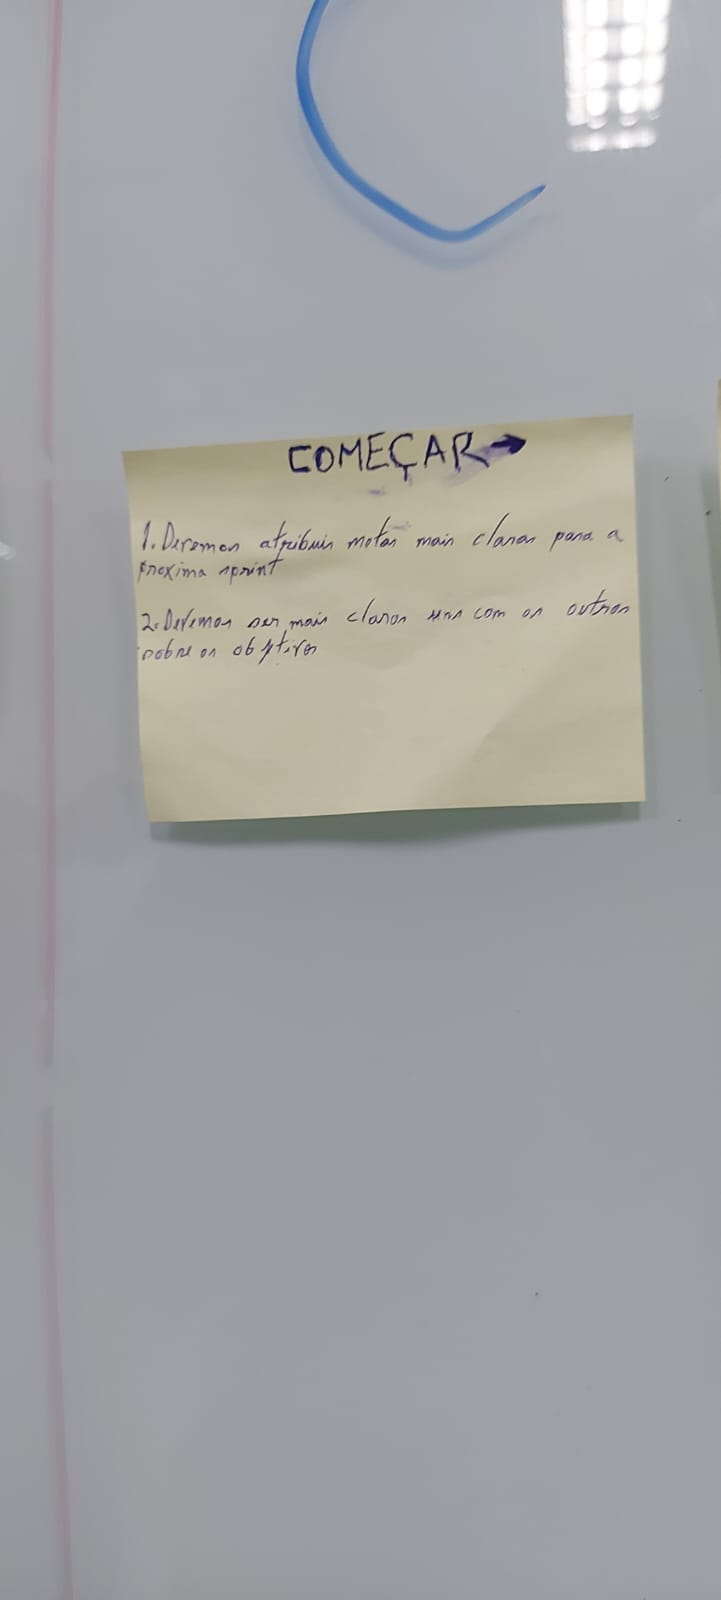 COMEÇAR →
1. Devemos atribuir metas mais claras para a
proxima sprint
2. Devemos ser mais claros uns com os outros
sobre os objtivos